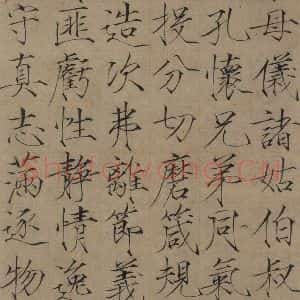 母儀諸姑伯叔
孔懷兄弟同氣
投分切磨箴規
造次弗離節義
匪虧性靜情逸
守真志滿逐物